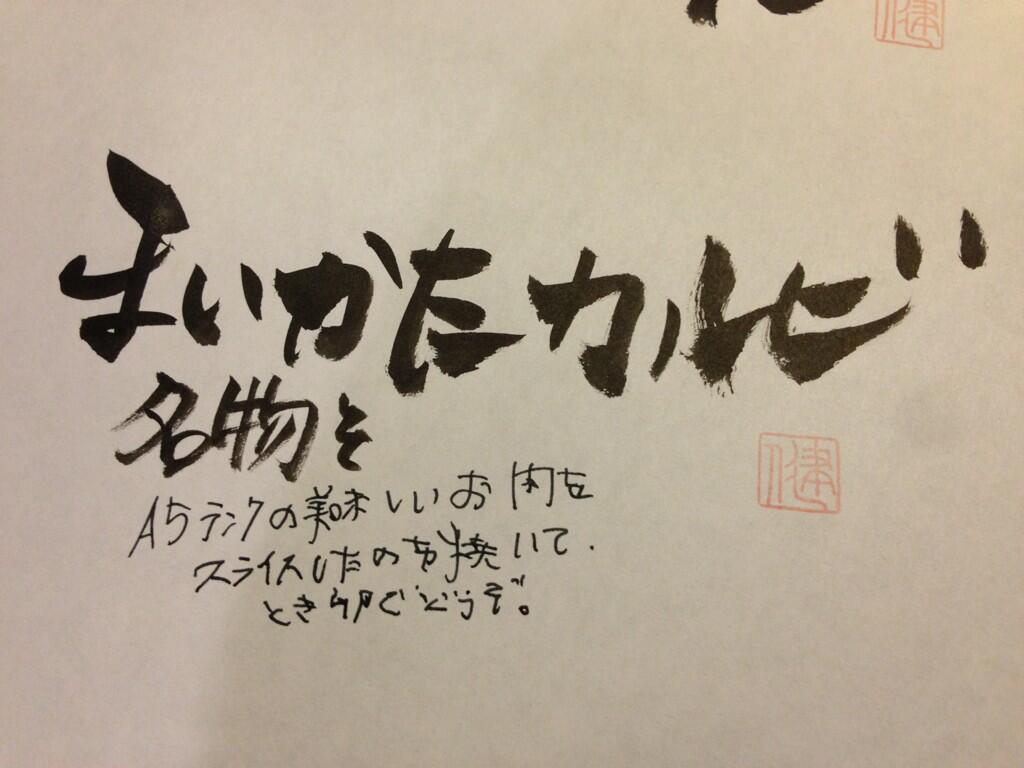 まいかたカルビ
名物を
A5ランクの美味しいお肉を
スライスしたのを焼いて.
とき卵でどうぞ。
健